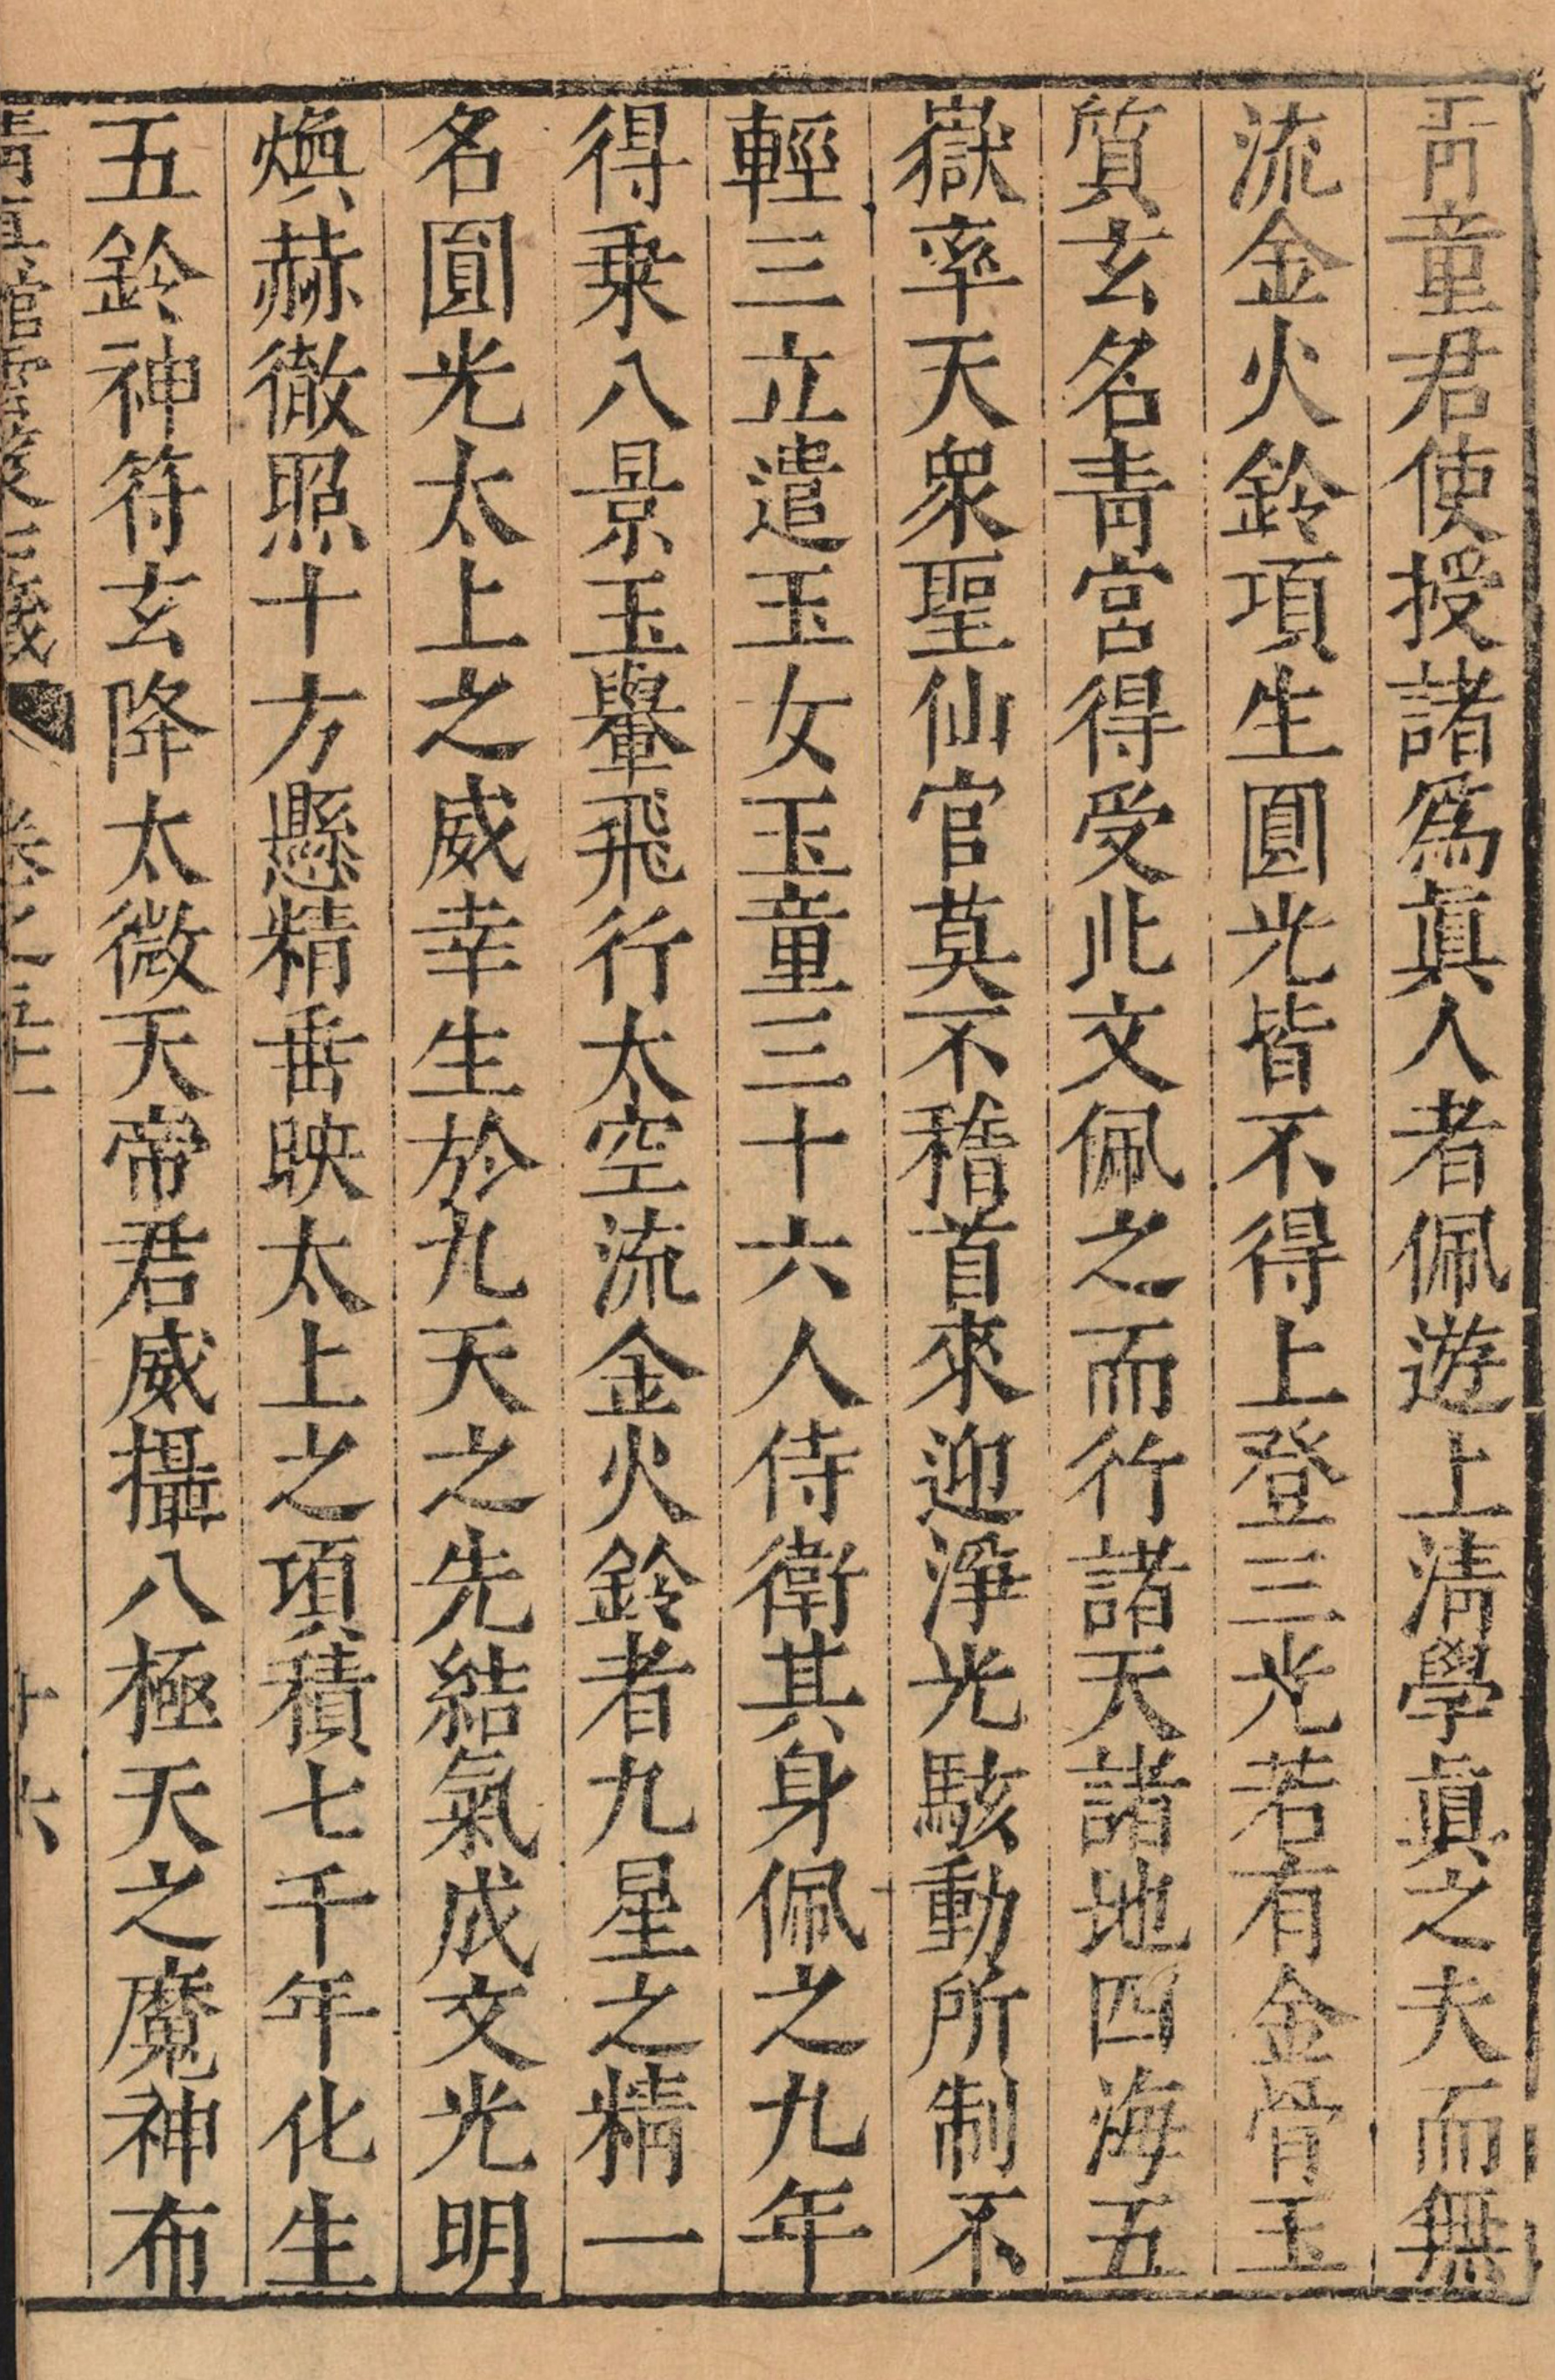 青童君使授諸爲眞人者佩遊上清學眞之夫而無
流金火鈴項生圓光皆不得上登三光若有金骨玉
質玄名青宮得受此文佩之而行諸天諸地四海五
嶽率天衆聖仙官莫不稽首來迎淨光駭動所制不
輕三立遣玉女玉童三十六人侍衛其身佩之九年
得乗八景玉轝飛行太空流金火鈴者九星之精一
名圓光太上之威幸生於九天之先結氣成文光明
煥赫徹照十方懸精垂映太上之項積七千年化生
五鈴神符玄降太微天帝君威攝八極天之魔神布
卷之五十 十六